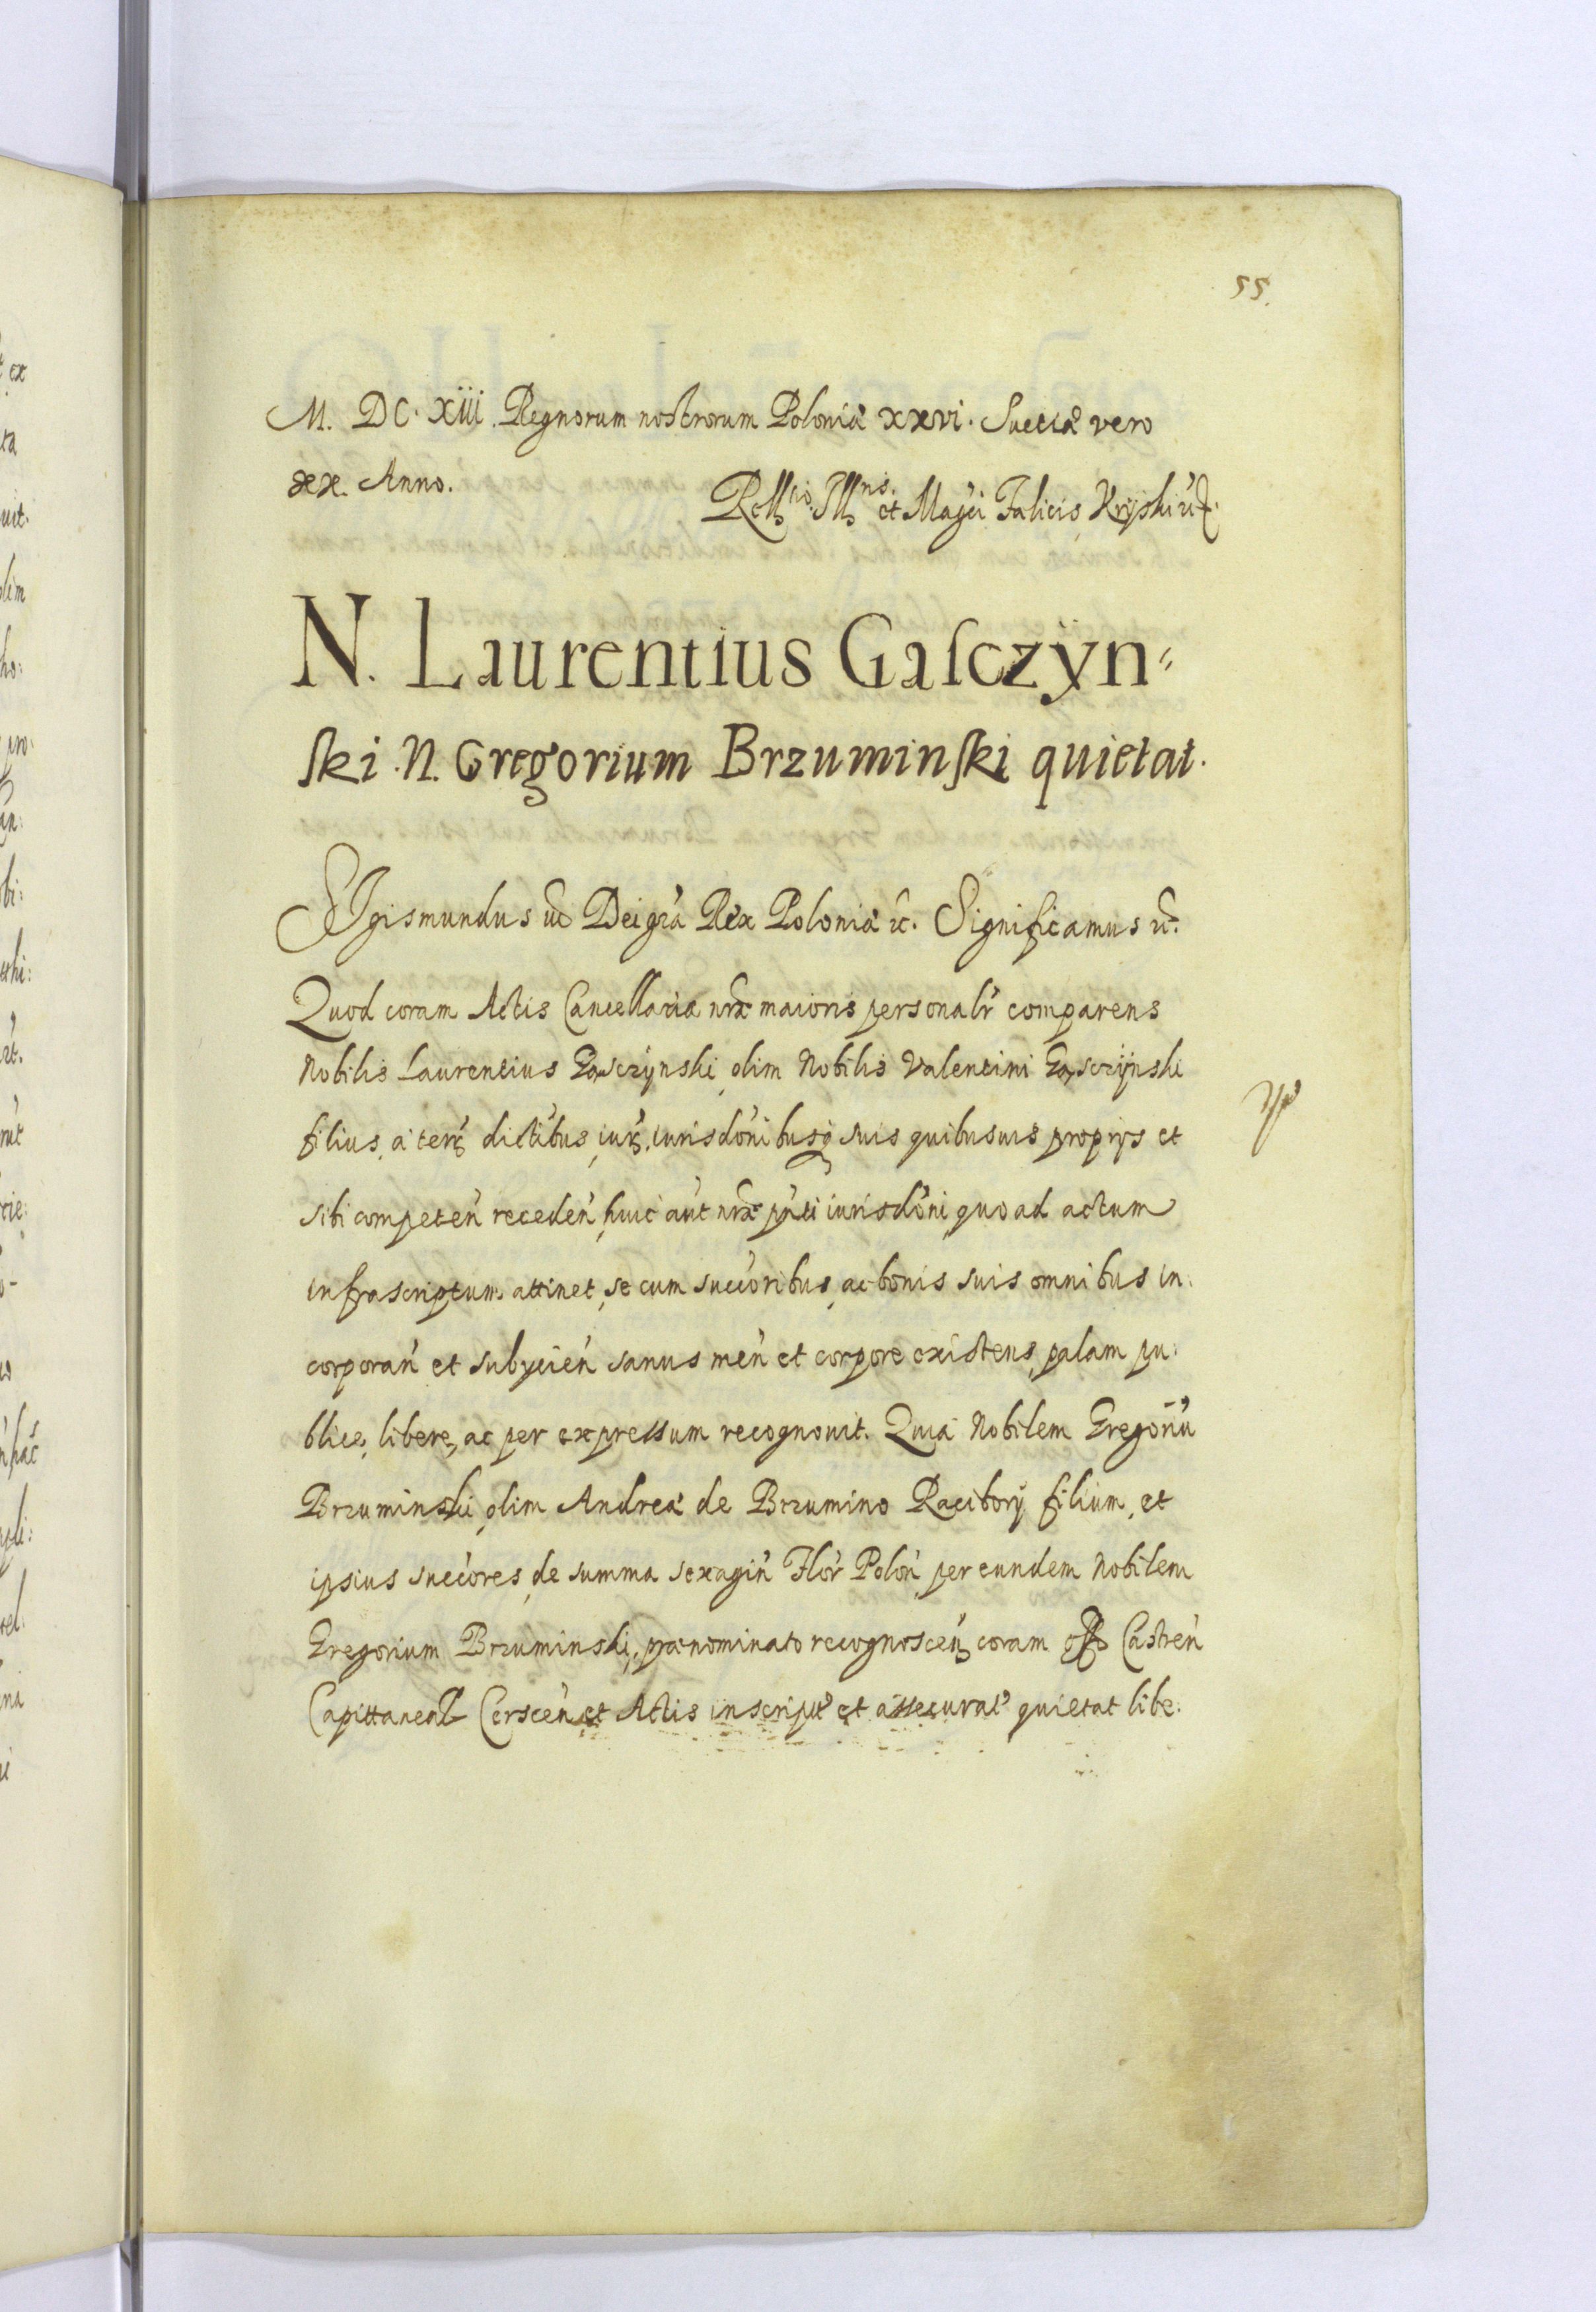 55.
M. DC. Xiii. Regnorum nostrorum Poloniæ xxvi. Sueciæ vero
xx. Anno.
Rellio. Illns. et Magci Fælicis Kryski uc.
N. Laurentius Gaſczÿn⸗
ſki N. Gregorium Brzuminſki quietat.
SIgismundus uc Dei gra Rex Poloniæ uc. Significamus uc.
Quod coram Actis Cancellariæ nræ maioris personalr comparens
Nobilis Laurentius Gasczÿnski, olim Nobilis Valentini Gasczÿnski
filius, a terr dictibus, iur. iurisdonibusq suis quibusuis proprijs et
sibi competen receden, huic aut nræ pnti iurisdoni, quo ad actum
infrascriptum attinet, se cum succoribus, ac bonis suis omnibus in:
corporan et subijcien sanus men et corpore existens, palam pu:
blice, libere, ac per expressum recognouit. Quia Nobilem Gregoriu
Brzuminski, olim Andreæ de Brzumino Racibory filium, et
ipsius succores, de summa sexagin Flor Polon per eundem Nobilem
Gregorium Brzuminski, prænominato recognoscen coram offo Castren
Capittaneal Cerscen et Actis inscript et assecurat quietat libe: